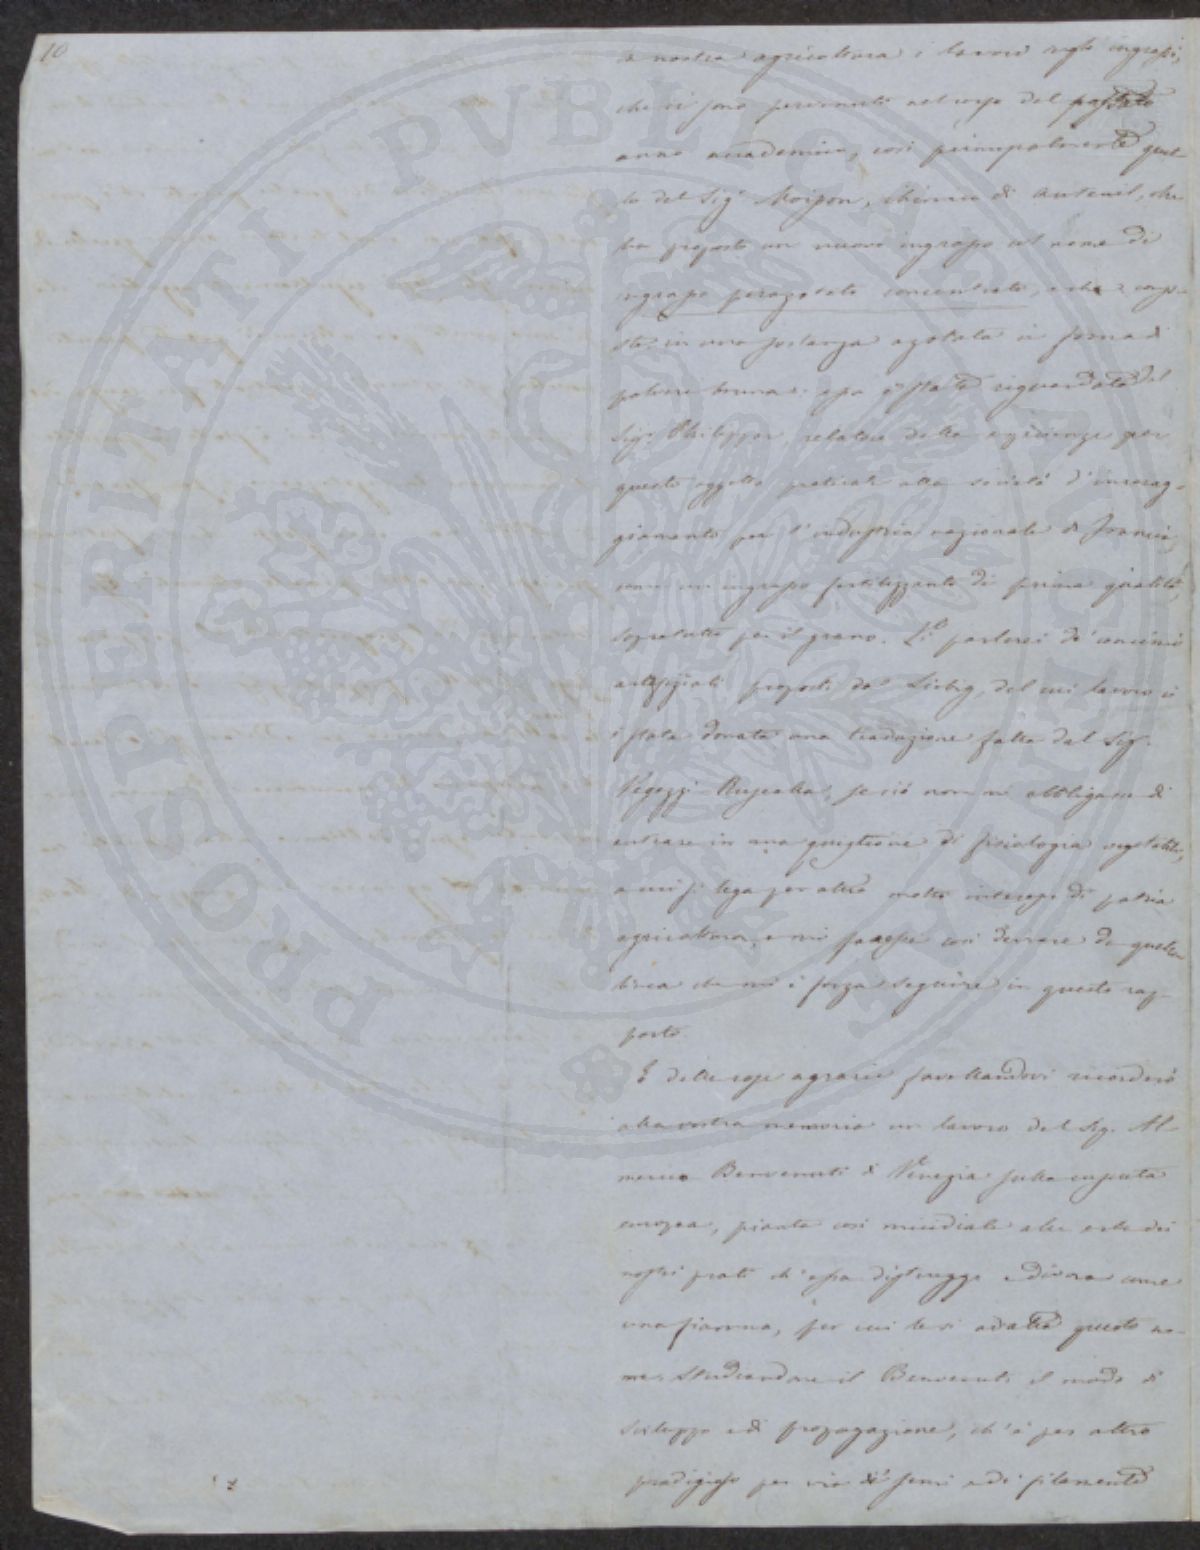 10
a nostra agricoltura i lavori sugli ingrassi,
che ci sono pervenuti nel corso del passato
anno accademico, così principalmente quel-
lo del Sig.r Moisson, chimico di Auteuil, che
ha proposto un nuovo ingrasso col nome di
ingrasso perazotato concentrato, e che
in una sostanza azotata in forma di
polvere bruna: essa è stata riguardata dal
Sig.r Philippar, relatore delle esperienze per
questo oggetto praticate alla società d'incorag-
giamento per l'industria nazionale di Francia,
come un ingrasso fertilizzante di prima qualità,
sopratutto per il grano. parlerei de' concimi
artifiziali proposti dal Liebig, del cui lavoro ci
è stata donata una traduzione fatta dal Sig.r
Pegozzi Ruscalla, se ciò non mi obbligasse di
entrare in una quistione di fisiologia vegetale,
a cui si lega per altro molto interesse di patria
agricoltura, e mi facesse così deviare da quella
linea che mi è forza seguire in questo rap-
porto.
E delle cose agrarie favellandovi ricorderò
alla vostra memoria un lavoro del Sig. Al-
merico Benvenuti di Venezia sulla cuscuta
europea, pianta così micidiale alle erbe dei
nostri prati ch'essa distrugge e divora come
una fiamma, per cui le si adatta questo no-
me. Studiandone il Benvenuti il modo di
sviluppo e di propagazione, ch'è per altro
prodigioso per via di semi e di filamenti
PROSPERITATI PVBLICAE AVGENDAE